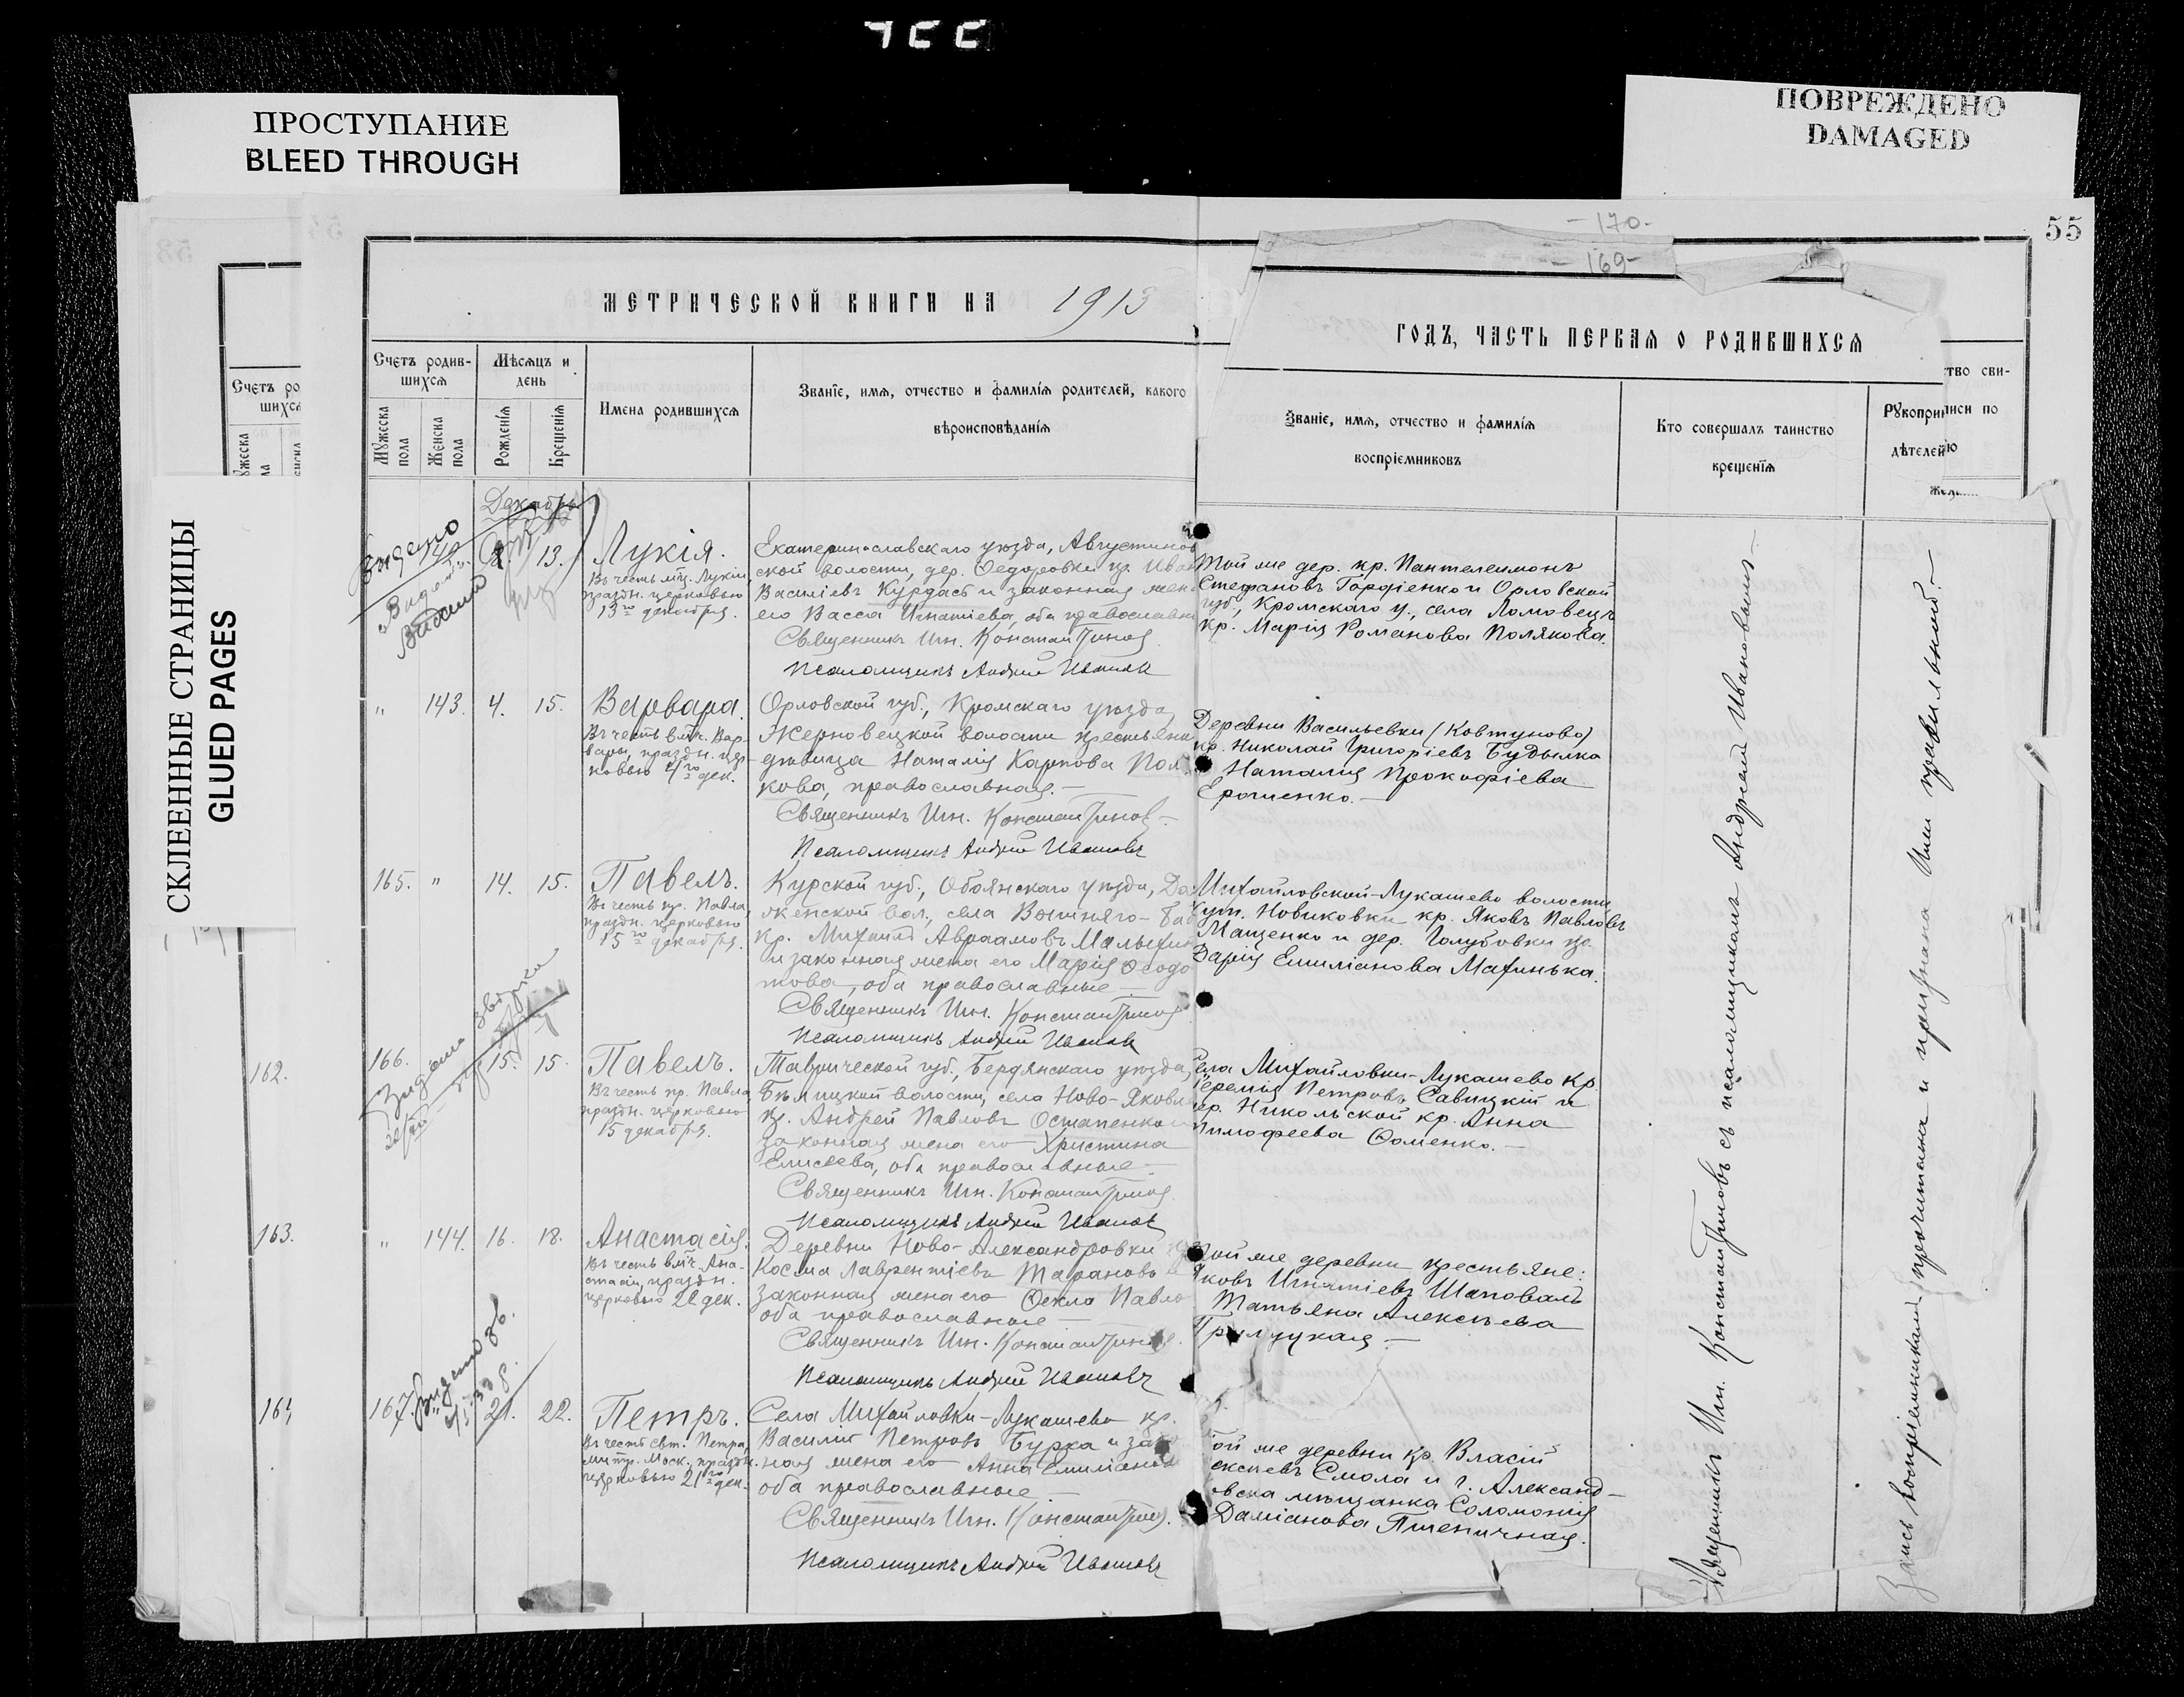 ПРОСТУПАНИЕ
BLEED THROUGH
ПОВРЕЖДЕНО
DAMAGED
СКЛЕЕННЫЕ СТРАНИЦЫ
GLUED PAGES
-170-
-169-
55
МЕТРИЧЕСКОЙ КНИГИ НА 1913
ГОДЪ, ЧАСТЬ ПЕРВАЯ О РОДИВШИХСЯ
Счетъ родив-
шихся
Мужеска пола
Женска пола
Мѣсяцъ и
день
Рожденія
Крещенія
Имена родившихся
Званіе, имя, отчество и фамилія родителей, какого
вѣроисповѣданія
Званіе, имя, отчество и фамилія
воспріемниковъ
Кто совершалъ таинство
крещенія
Рукопри
дѣтелей
тво сви-
писи по
Декабрь
13.
Лукія.
Въ честь мц. Лукіи,
праздн. церковью
13го декабря.
Екатеринославскаго уѣзда, Августинов
ской волости, дер. Ѳедоровки кр. Иван
Василіевъ Курдасъ и законная жен
его Васса Игнатіева, оба православн
Священникъ Иг. Константинов
Псаломщикъ Андрей Иванов
Той же дер. кр. Пантелеимонъ
Стефановъ Гордіенко и Орловской
губ., Кромскаго у., села Ломовецъ
кр. Марія Романова Полякова.
" 143. 4. 15.
Варвара.
Въ честь вмч. Вар-
вары, праздн. цер-
ковью 4го дек.
Орловской губ., Кромскаго уѣзда,
Жерновецкой волости крестьянк
дѣвица Наталія Карпова Пол
кова, православная.—
Священникъ Иг. Константинов
Псаломщикъ Андрей Ивановъ
Деревни Васильевки (Ковтуново)
кр. Николай Григоріевъ Будылка
Наталія Прокофіева
Ерошенко.—
165. " 14. 15.
Павелъ.
Въ честь пр. Павла,
праздн. церковью
15го декабря.
Курской губ., Обоянскаго уѣзда,
вол., села Вышняго-
кр. Михаилъ Авраамовъ Малыхин
и законная жена его Марія Ѳедо
това, оба православные—
Священникъ Иг. Константинов
Псаломщикъ Андрей Иванов
Михайловской-Лукашево волости
хут. Новиковки кр. Яковъ Павловъ
Мащенко и дер. Голубовки кр.
Дарія Емиліанова Махинька.
162.
166. 15. 15.
Павелъ.
Въ честь пр. Павла,
праздн. церковью
15 декабря.
Таврической губ., Бердянскаго уѣзда,
волости, села Ново-Яковл
кр. Андрей Павловъ Остапенко
законная жена его Христина
Елисеева, оба православные—
Священникъ Иг. Константинов
Псаломщикъ Андрей Иванов
Села Михайловки-Лукашево кр.
Іеремія Петровъ Савицкій и
дер. Никольской кр. Анна
Тимофеева Фоменко.—
163.
" 144. 16. 18.
Анастасія.
Въ честь вмч. Ана-
стасіи, праздн.
церковью 22 дек.
Деревни Ново-Александровки
Косма Лаврентіевъ Тарановъ
законная жена его Ѳекла Павло
оба православные—
Священникъ Иг. Константинов
Псаломщикъ Андрей Ивановъ
той же деревни крестьяне:
Яковъ Игнатіевъ Шаповалъ
Татьяна Алексѣева
167. 21. 22.
Петръ.
Въ честь свт. Петра,
митр. Моск., праздн.
церковью 21го дек.
Села Михайловки-Лукашево кр.
Василій Петровъ Бурка и зако
ная жена его Анна Емиліанов
оба православные—
Священникъ Иг. Константинов
Псаломщикъ Андрей Ивановъ
той же деревни кр. Власій
ексѣевъ Смола и г. Александ-
овска мѣщанка Соломонія
Даміанова Пшеничная.
Священникъ Иг. Константиновъ съ псаломщикомъ Андреемъ Ивановымъ—
Запись воспріемникамъ прочитана и признана ими правильной.—